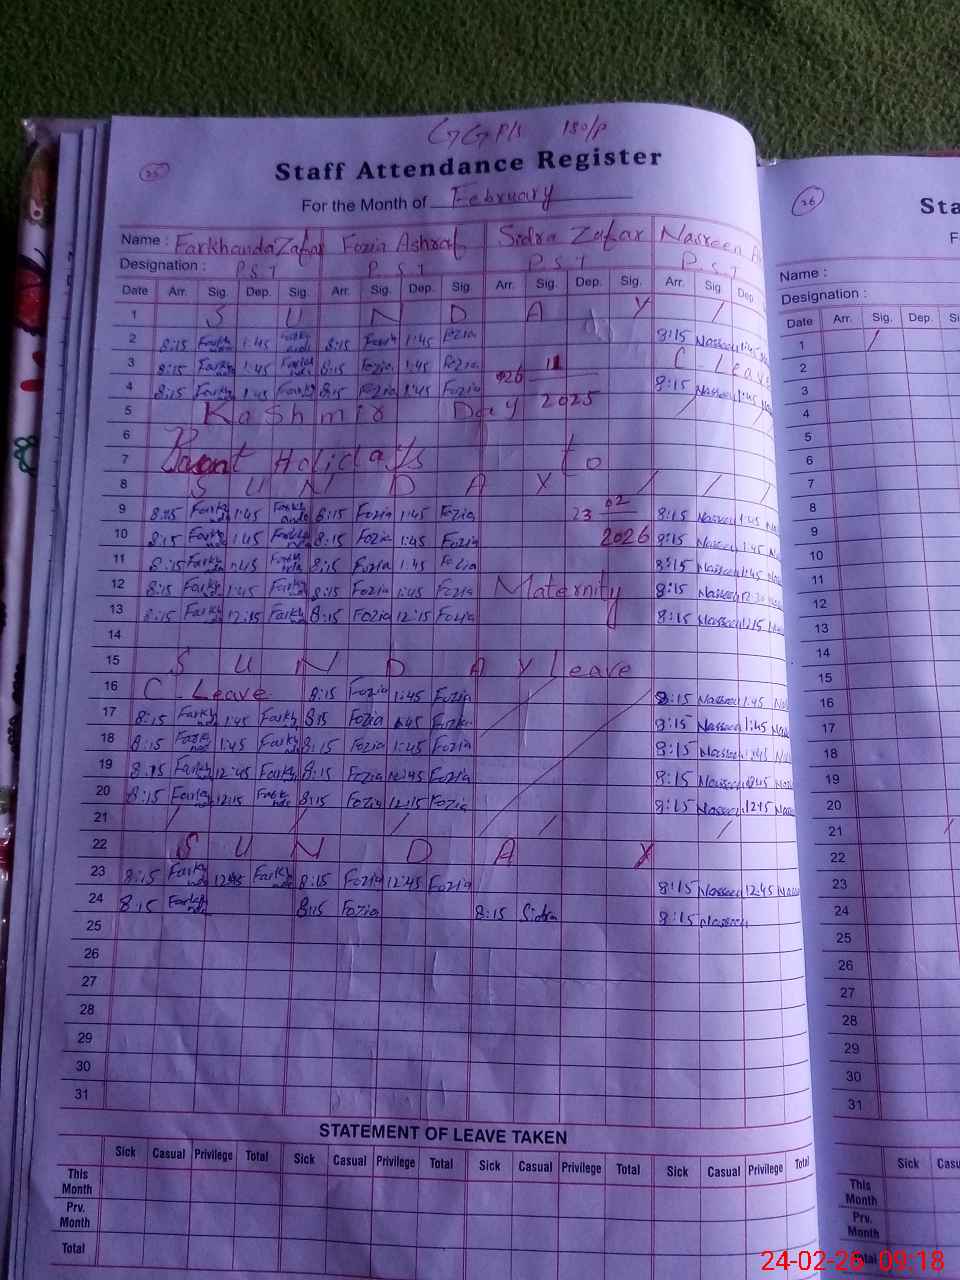 GGP/S 150/P
25
Staff Attendance Register
For the Month of February
Name : Farkhanda Zafar Fozia Ashraf Sidra Zafar Nasreen
Designation : P.S.T P.S.T P.S.T P.S.T
Date Arr. Sig. Dep. Sig. Arr. Sig. Dep. Sig. Arr. Sig. Dep. Sig. Arr. Sig. Dep.
1 S U N D A Y
2 8:15 Farkhanda 1:45 Farkhanda 8:15 Fozia 1:45 Fozia 8:15 Nasreen 1:45
3 8:15 Farkhanda 1:45 Farkhanda 8:15 Fozia 1:45 Fozia 11 C. Leave
4 8:15 Farkhanda 1:45 Farkhanda 8:15 Fozia 1:45 Fozia 8:15 Nasreen 1:45
5 Kashmir Day 2025
6
7 Basant Holidays to
8 S U N D A Y
9 8:15 Farkhanda 1:45 Farkhanda 8:15 Fozia 1:45 Fozia 23 02 8:15 Nasreen 1:45
10 8:15 Farkhanda 1:45 Farkhanda 8:15 Fozia 1:45 Fozia 2026 8:15 Nasreen 1:45
11 8:15 Farkhanda 1:45 Farkhanda 8:15 Fozia 1:45 Fozia 8:15 Nasreen 1:45
12 8:15 Farkhanda 1:45 Farkhanda 8:15 Fozia 1:45 Fozia Maternity 8:15 Nasreen
13 8:15 Farkhanda 12:15 Farkhanda 8:15 Fozia 12:15 Fozia 8:15 Nasreen 12:15
14
15 S U N D A Y Leave
16 C. Leave 8:15 Fozia 1:45 Fozia 8:15 Nasreen 1:45
17 8:15 Farkhanda 1:45 Farkhanda 8:15 Fozia 1:45 Fozia 8:15 Nasreen 1:45
18 8:15 Farkhanda 1:45 Farkhanda 8:15 Fozia 1:45 Fozia 8:15 Nasreen 1:45
19 8:15 Farkhanda 12:45 Farkhanda 8:15 Fozia 12:45 Fozia 8:15 Nasreen 12:45
20 8:15 Farkhanda 12:15 Farkhanda 8:15 Fozia 12:15 Fozia 8:15 Nasreen 12:15
21
22 S U N D A Y
23 8:15 Farkhanda 12:45 Farkhanda 8:15 Fozia 12:45 Fozia 8:15 Nasreen 12:45
24 8:15 Farkhanda 8:15 Fozia 8:15 Sidra 8:15 Nasreen
25
26
27
28
29
30
31
STATEMENT OF LEAVE TAKEN
Sick Casual Privilege Total Sick Casual Privilege Total Sick Casual Privilege Total Sick Casual Privilege Total
This Month
Prv. Month
Total
26
Sta
F
Name :
Designation :
Date Arr. Sig. Dep. Si
1
2
3
4
5
6
7
8
9
10
11
12
13
14
15
16
17
18
19
20
21
22
23
24
25
26
27
28
29
30
31
Sick Casu
This Month
Prv. Month
Total
24-02-26 09:18